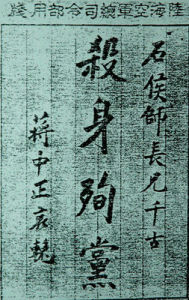 陸海空軍總司令部用牋
石侯師長兄千古
殺身殉黨
蔣中正哀輓